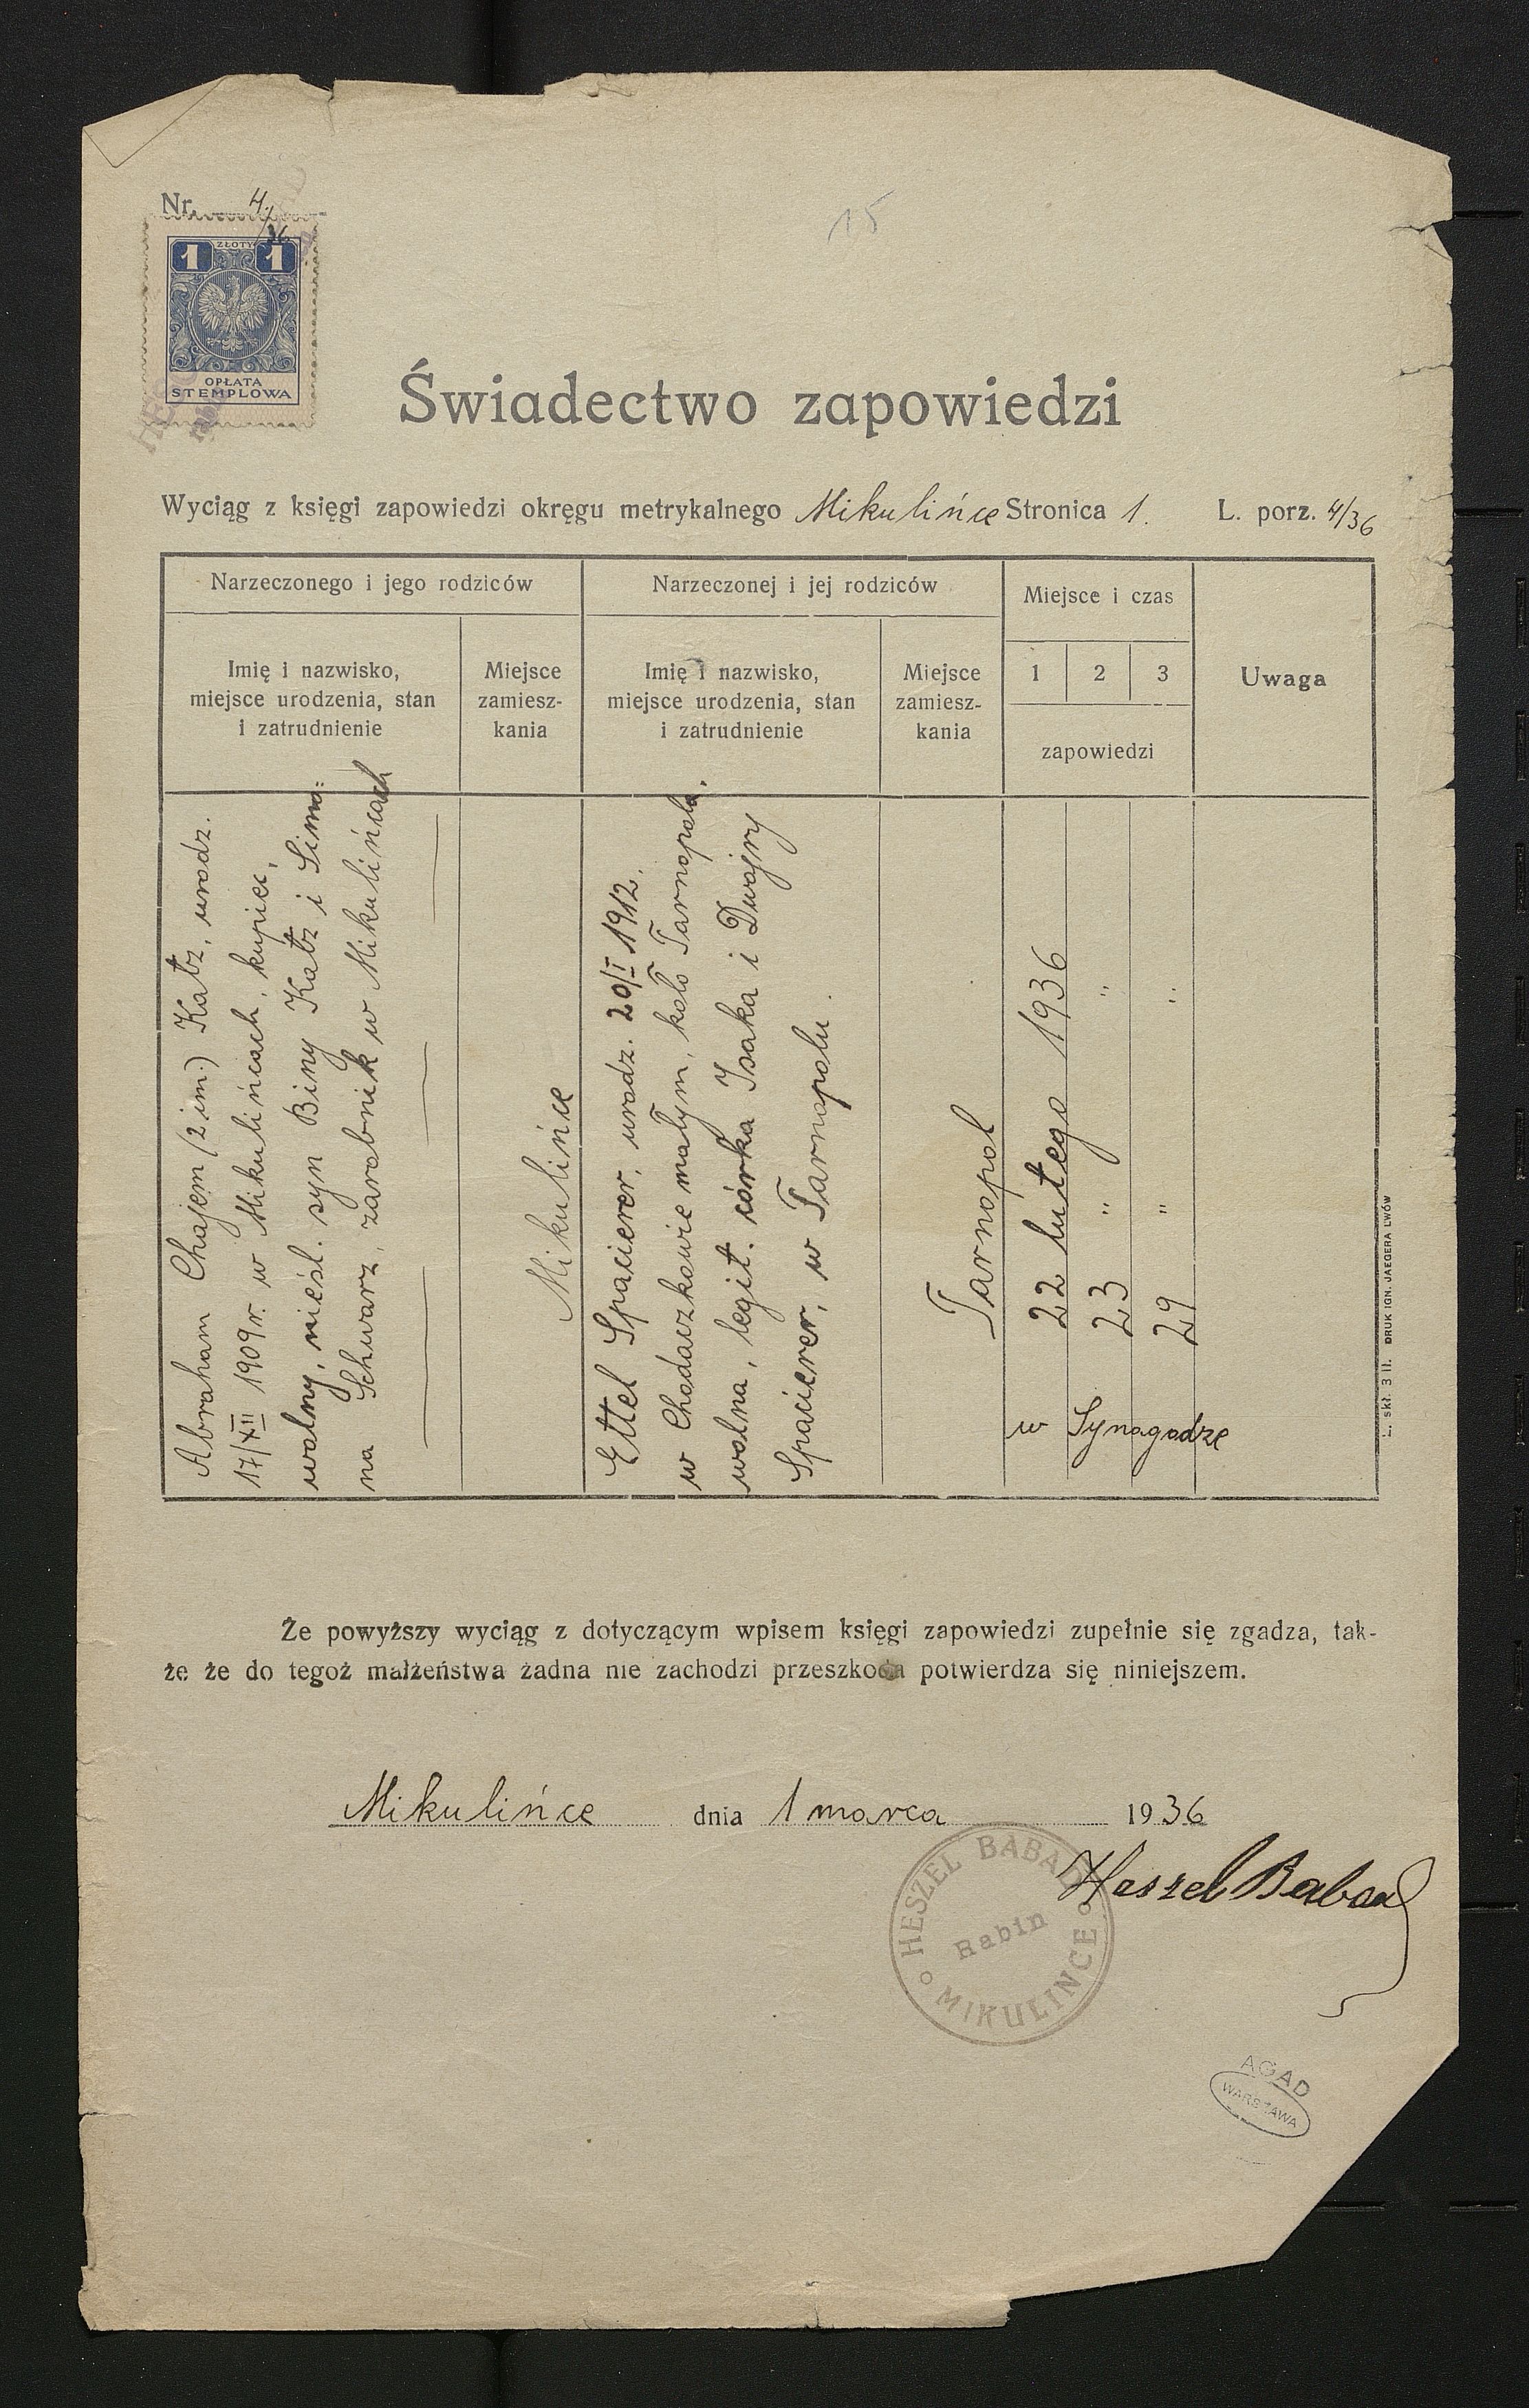 Nr. 4/36
15
ZŁOTY
1 1
OPŁATA
STEMPLOWA
Świadectwo zapowiedzi
Wyciąg z księgi zapowiedzi okręgu metrykalnego Mikulińce Stronica 1. L. porz. 4/36
Narzeczonego i jego rodziców
Imię i nazwisko,
miejsce urodzenia, stan
i zatrudnienie
Miejsce
zamiesz-
kania
Narzeczonej i jej rodziców
Imię i nazwisko,
miejsce urodzenia, stan
i zatrudnienie
Miejsce
zamiesz-
kania
Miejsce i czas
1 2 3
zapowiedzi
Uwaga
Abraham Chajem (2 im.) Katz, urodz.
17/XII 1909 r. w Mikulińcach, kupiec,
wolny, nieśl. syn Biny Katz i Simo=
na Schwarz, zarobnik w Mikulińcach
Mikulińce
Ettel Spacierer, urodz. 20/I 1912.
w Chodaczkowie małym, koło Tarnopola,
wolna, legit. córka Isaka i Dwojry
Spacierer, w Tarnopolu.
Tarnopol
22 lutego 1936
23 " "
29 " "
w Synagodze
L. skł. 3 II. DRUK IGN. JAEGERA LWÓW
Że powyższy wyciąg z dotyczącym wpisem księgi zapowiedzi zupełnie się zgadza, tak-
że że do tegoż małżeństwa żadna nie zachodzi przeszkoda potwierdza się niniejszem.
Mikulińce dnia 1 marca 1936
Heszel Babad
HESZEL BABAD
Rabin
MIKULINCE
AGAD
WARSZAWA